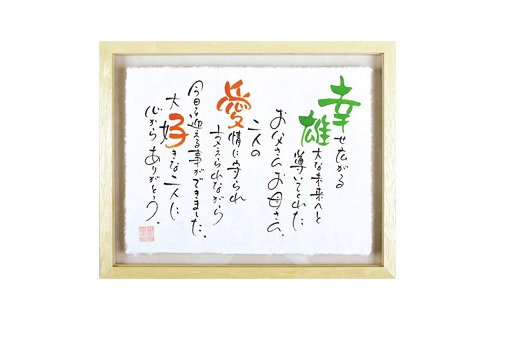 幸せ広がる
雄大な未来へと
導いてくれた
お父さんお母さん、
二人の
愛情に守られ
支えられながら
今日を迎える事ができました。
大好きな二人に
心からありがとう。